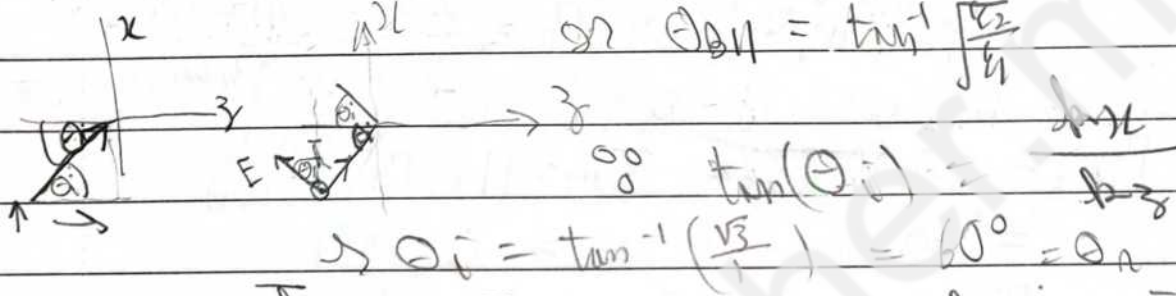 x x or θB11 = tan⁻¹ √(ε2/ε1)
z θi θi E θi θi z ∴ tan(θi) = kx/kz
↳ θi = tan⁻¹(√3/1) = 60° = θr